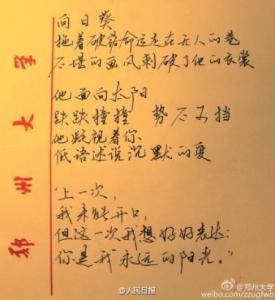 向日葵
拖着破落命运走在无人的巷
不堪的画风刺破了他的衣裳
他面向太阳
跌跌撞撞 势不可挡
他凝视着你
低语述说沉默的爱
"上一次,
我未能开口,
但这一次我想好好表达:
你是我永远的阳光。"
郑州大学
@人民日报
@郑州大学
weibo.com/zzugfwb